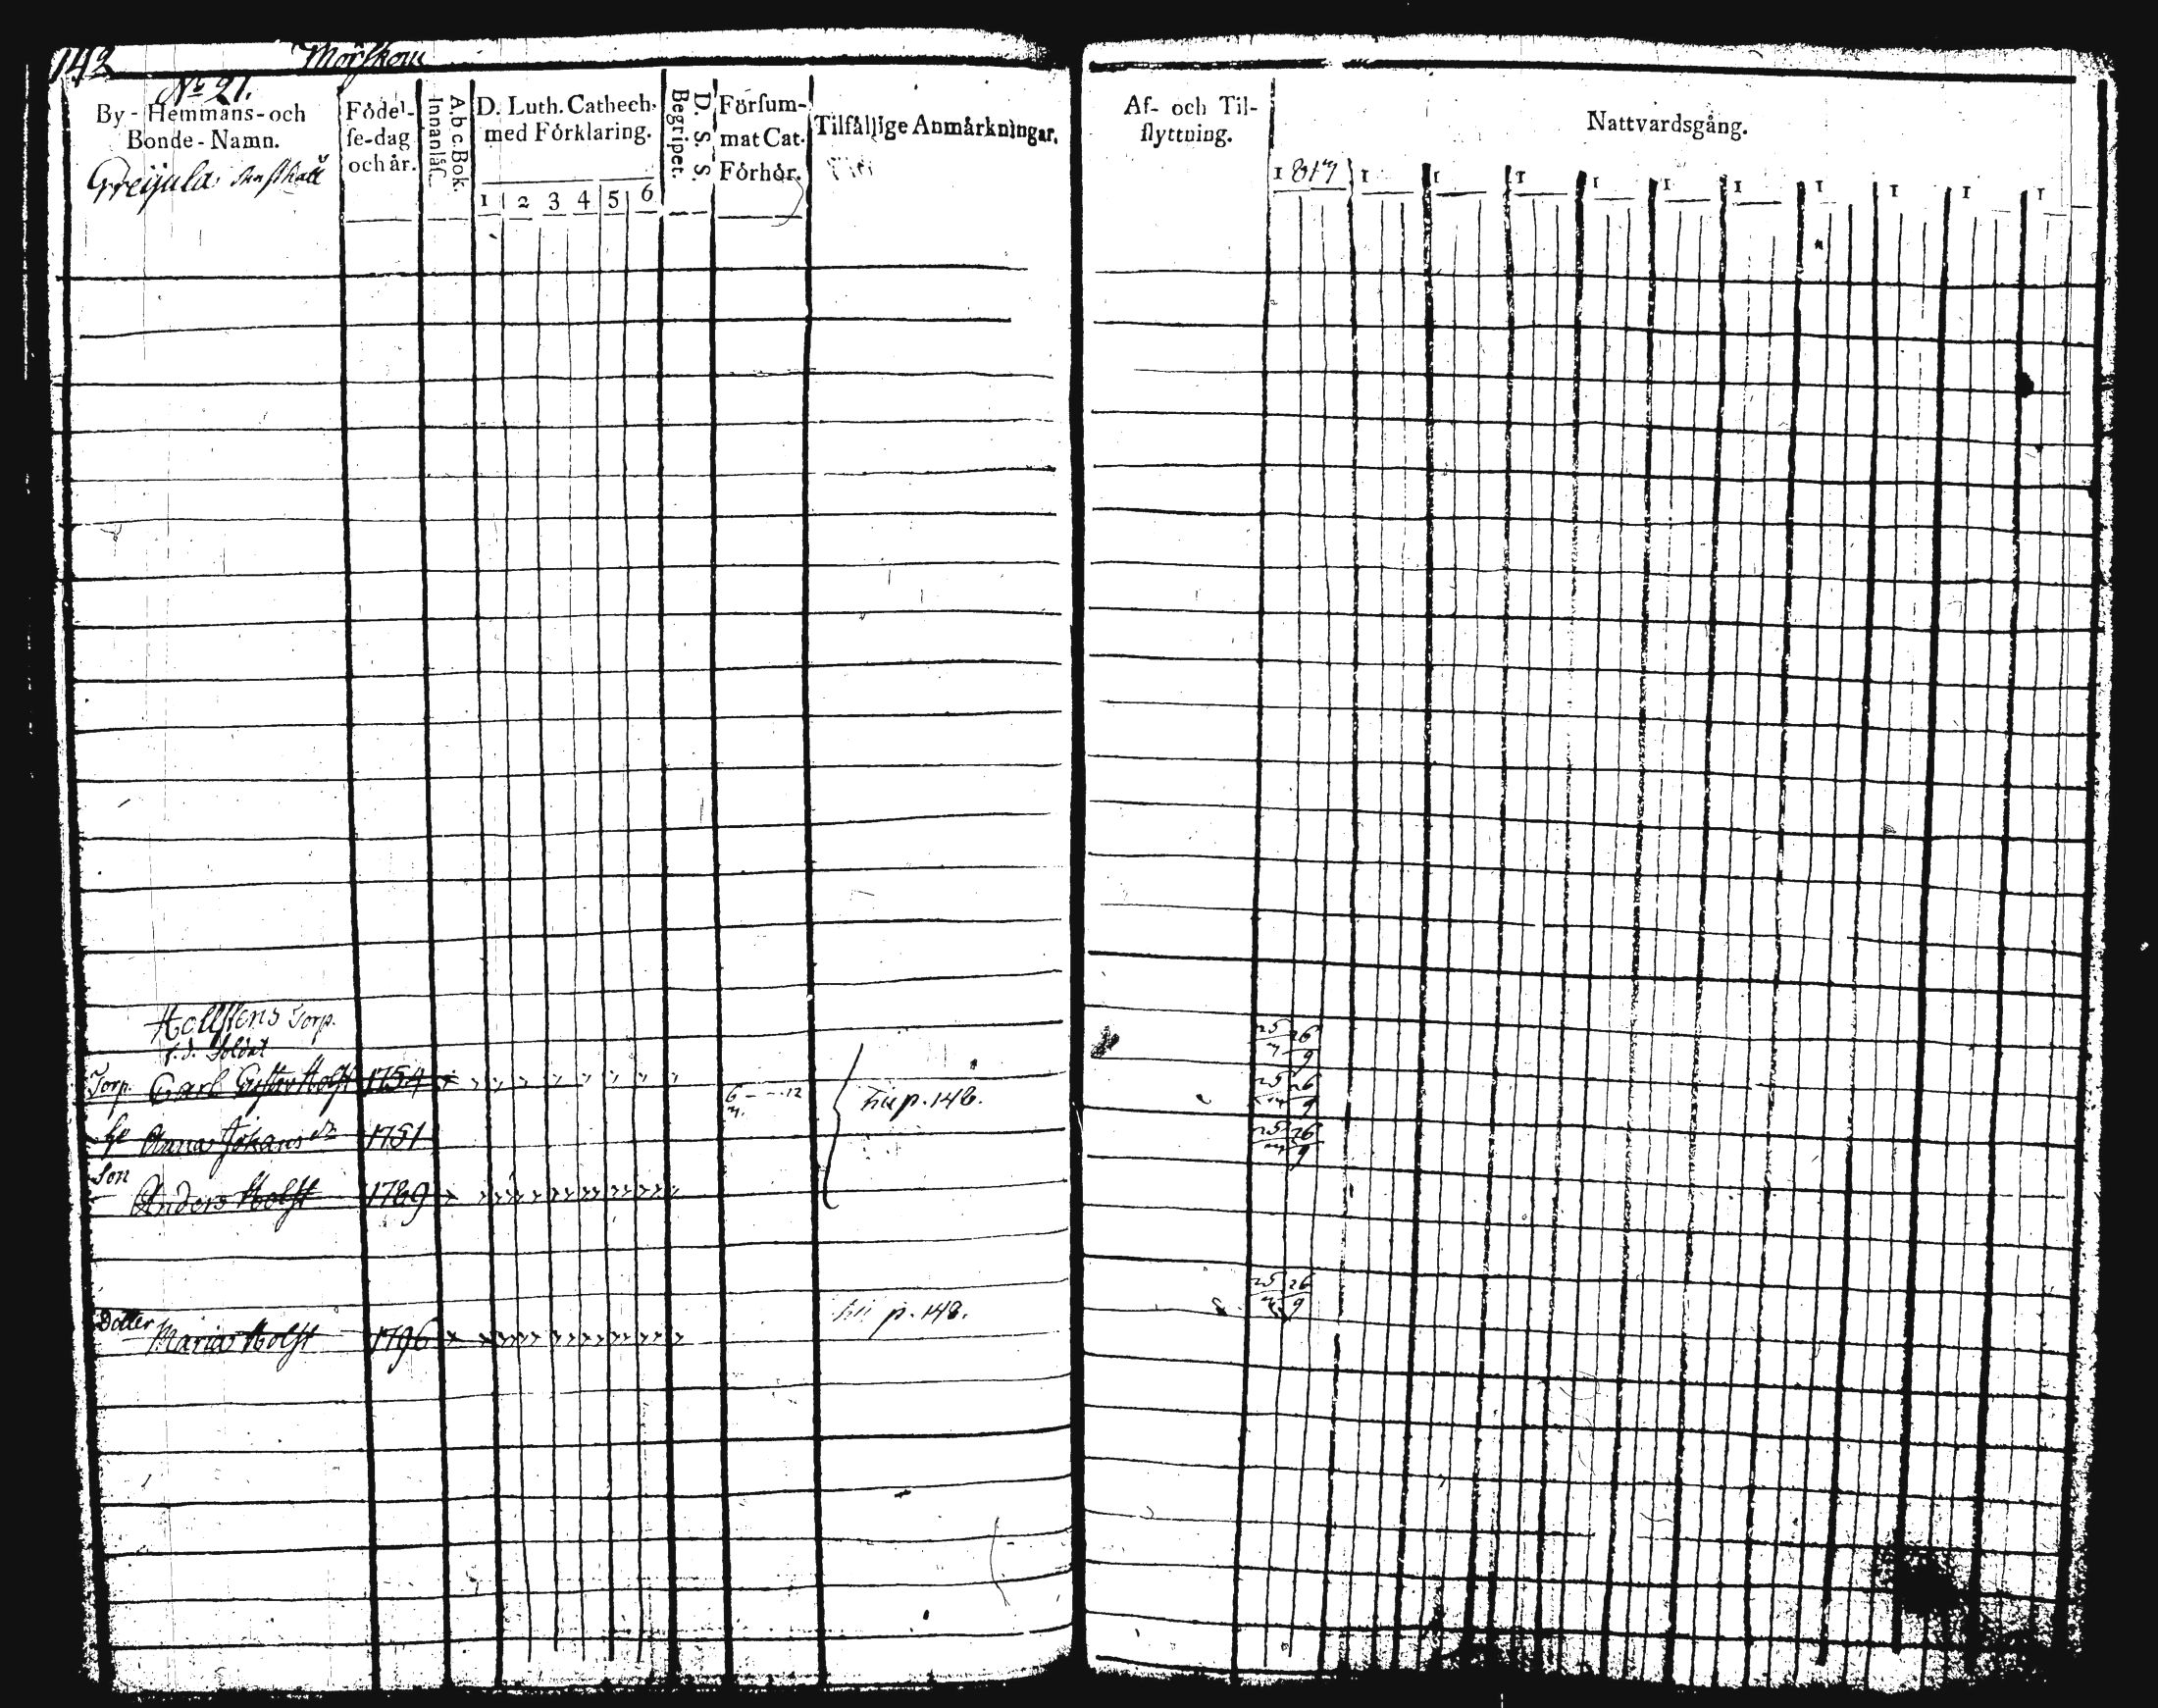 142 Mörskom
No 21.
By-Hemmans-och
Bonde-Namn.
Greijula
Födel-
se-dag
och år.
A.b.c.Bok.
Innanläs.
D. Luth. Cathech.
med Förklaring.
1 2 3 4 5 6
D. S. S.
Begripet.
Försum-
mat Cat.
Förhör.
Tilfällige Anmärkningar.
Af- och Til-
flyttning.
Nattvardsgång.
1817 1 1 1 1 1 1 1 1 1 1
Hollstens Torp.
f. d. Soldat
Torp. Carl Gustav Holst 1754
Anna Johans dr 1751
Son
Anders Holst 1789
p. 148.
25 26
7 9
25 26
7 9
25 26
7 9
Dotter
Maria Holst 1796
p. 148.
25 26
7 9